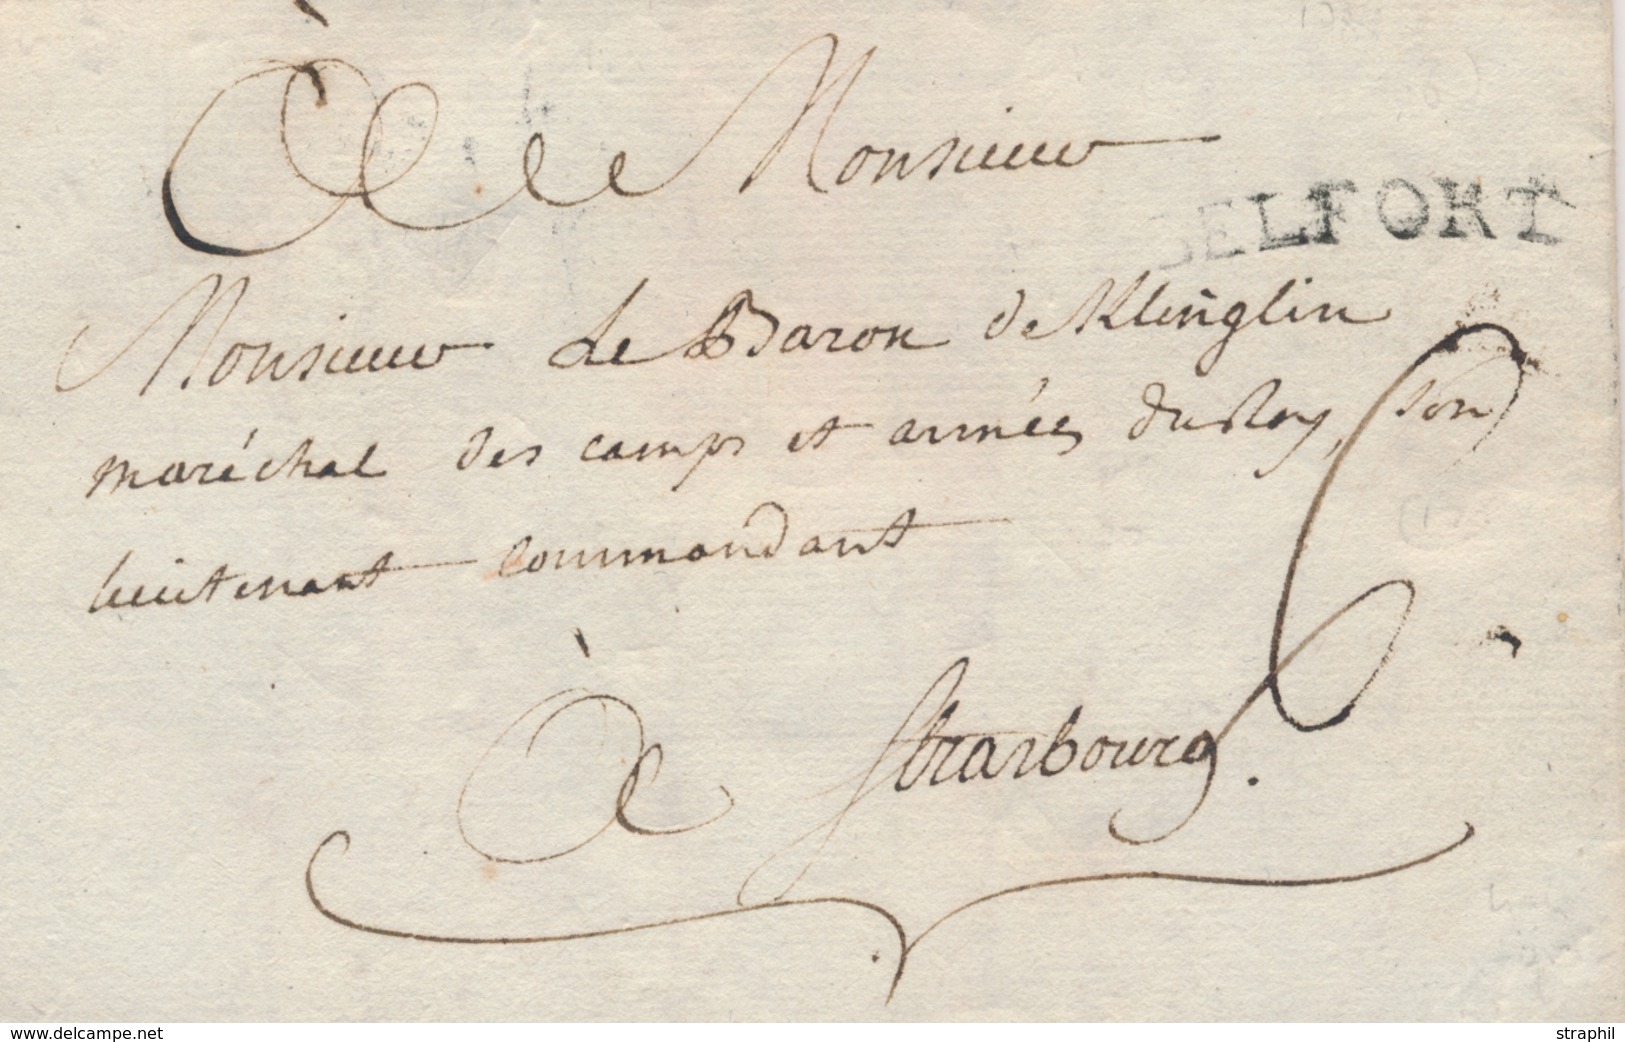 À Monsieur
BELFORT
Monsieur Le Baron de Klinglin
maréchal des camps et armées du Roy, son
lieutenant commandant
6
à Strasbourg.
www.delcampe.net
straphil